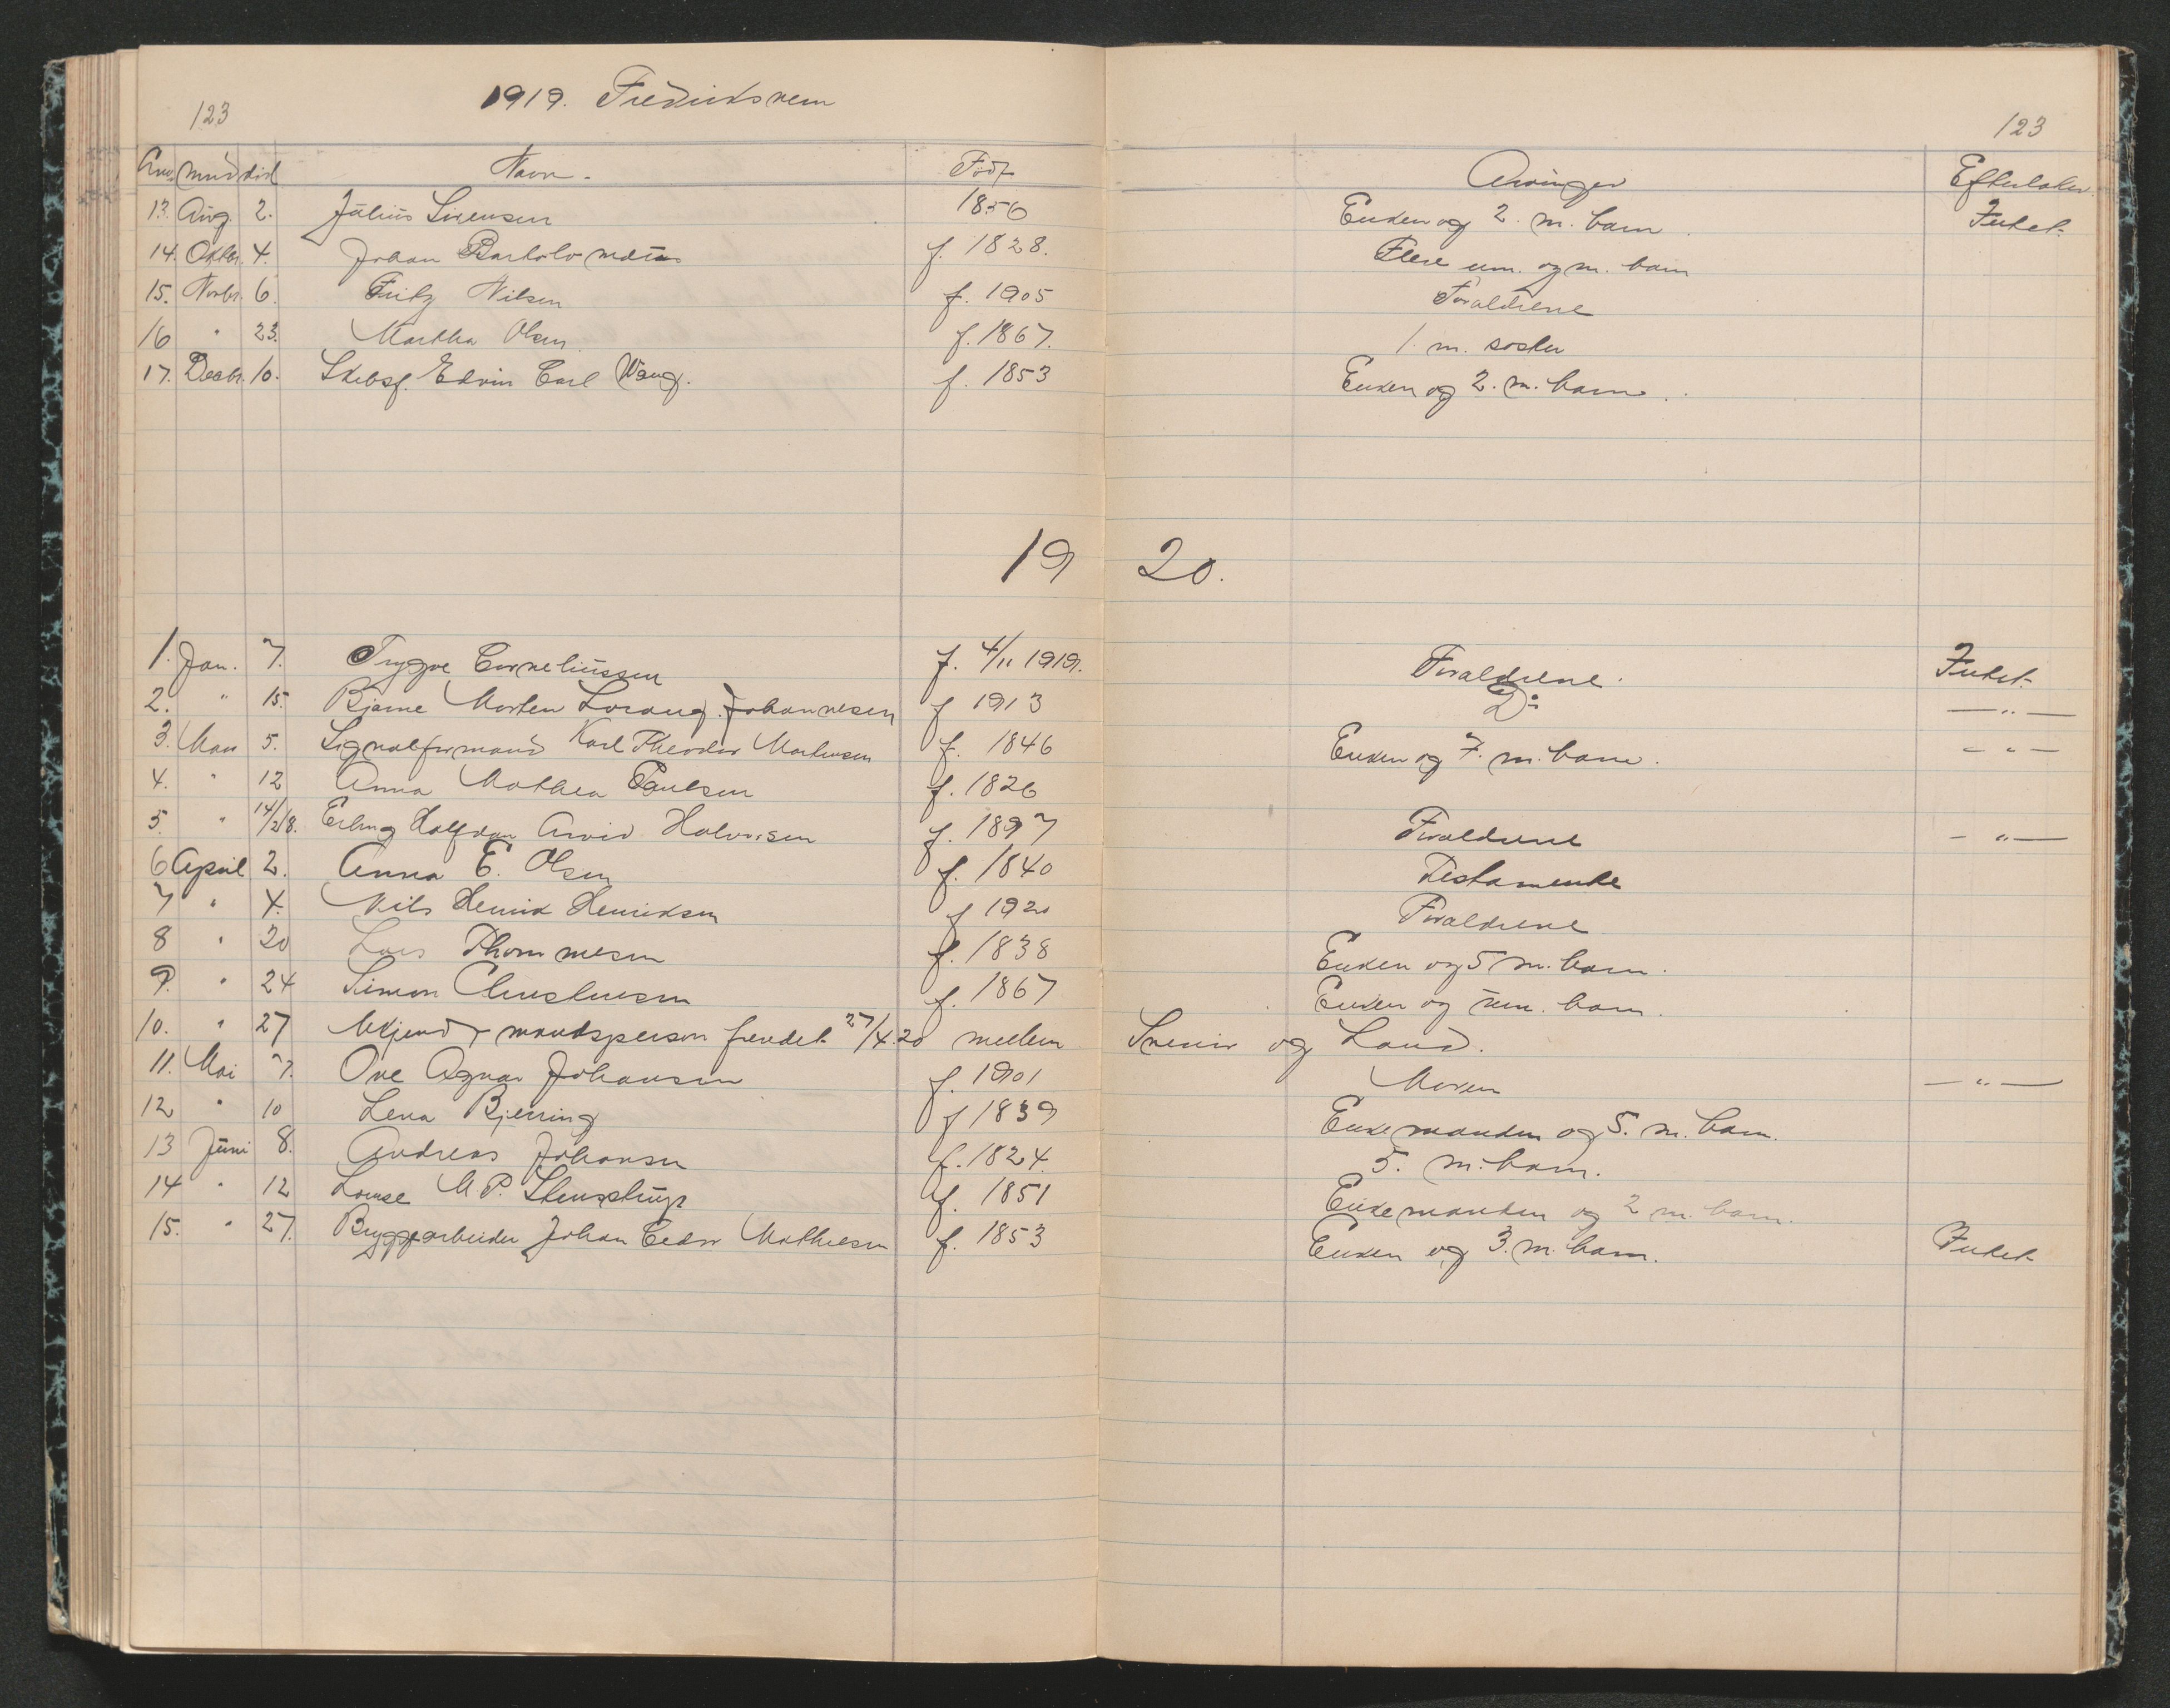 123 1919. Fredriksvern 123
Anm. mnd död Navn. Född Arvinger Efterlater
13. Aug. 2. Julius Sörensen 1856 Enken og 2. m. barn. Intet.
14. Oktbr. 4. Johan Bartolomæus f. 1828. Flere um. og m. barn
15. Novbr. 6. Fritz Nilsen f. 1905 Foraldrene
16 " 23. Martha Olsen f. 1867. 1 m. søster
17. Decbr. 10. Skibsf. Edvin Carl Wang. f. 1853 Enken og 2. m. barn.
19 20.
1. Jan. 7. Trygve Corneliussen f. 4/11 1919. Foraldrene. Intet.
2. " 15. Bjarne Morten Lorang Johannesen f 1913 Do — " —
3. Mars 5. Signalformand Karl Theodor Martinsen f. 1846 Enken og 7. m. barn. — " —
4. " 12 Anna Mathea Paulsen f. 1826
5. " 14/2 18. Erling Halfdan Arvid Halvorsen f. 1897 Foraldrene — " —
6 April 2. Anna E. Olsen f. 1840 Testamente
7 " 4. Nils Henrik Henriksen f 1920 Foraldrene
8 " 20 Lars Thommesen f. 1838 Enken og 5 m. barn.
9. " 24 Simon Christensen f. 1867 Enken og um. barn.
10. " 27 Ukjendt mandsperson fundet 27/4.20 mellem Svenør og Land.
11. Mai 7. Ove Agnar Johansen f. 1901 Moren — " —
12 " 10 Lena Bjerring f 1839 Enkemanden og 5. m. barn.
13 Juni 8. Andreas Johansen f. 1824. 5. m. barn.
14 " 12 Lovise M. P. f. 1851 Enkemanden og 2 m. barn.
15. " 27. Bryggearbeider Johan Mathisen f. 1853 Enken og 3. m. barn. Intet